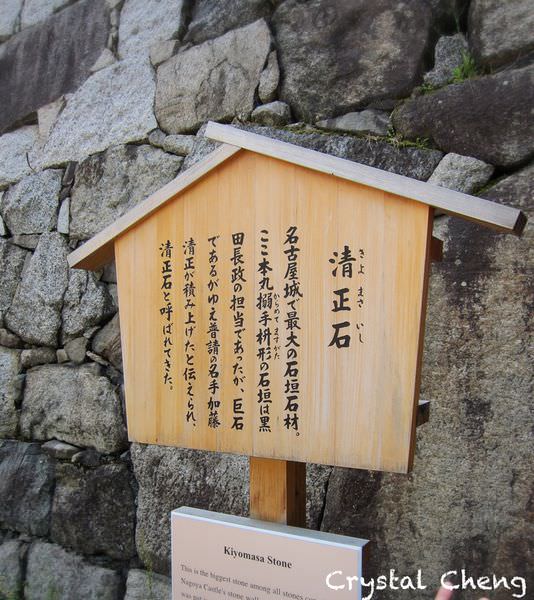 きよまさいし
清正石
名古屋城で最大の石垣石材。
ここ本丸搦手枡形の石垣は黒
からめて ますがた
田長政の担当であったが、巨石
であるがゆえ普請の名手加藤
清正が積み上げたと伝えられ、
清正石と呼ばれてきた。
Kiyomasa Stone
This is the biggest stone among all stones
Nagoya Castle's stone
was
Crystal Cheng